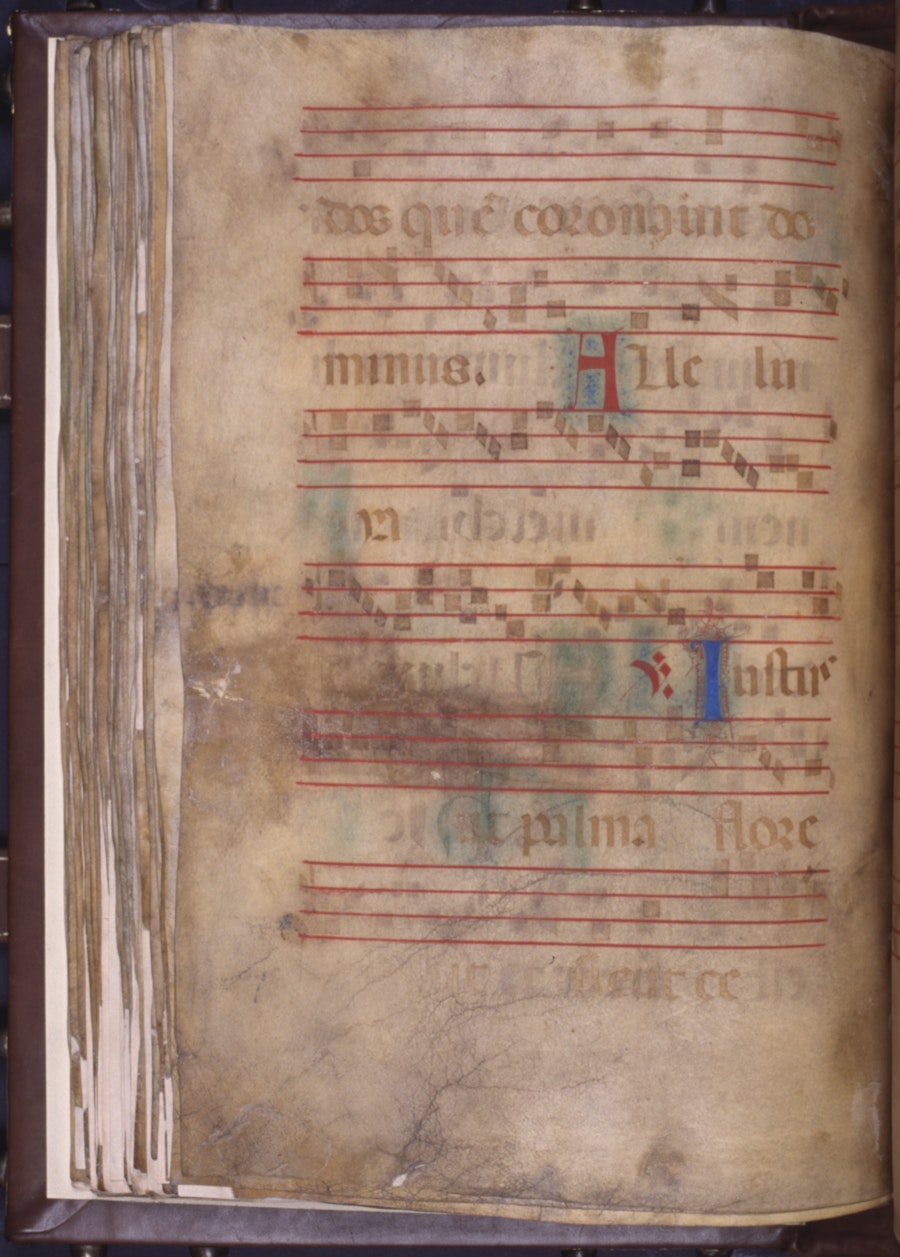 dos quē coronauit do
minus. Alle lu
ia
℣ Iustus
ut palma flore
bit et sicut ce